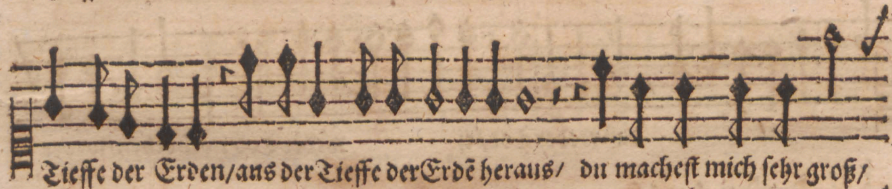 Tieffe der Erden/aus der Tieffe der Erdẽ heraus/ du machest mich sehr groß/